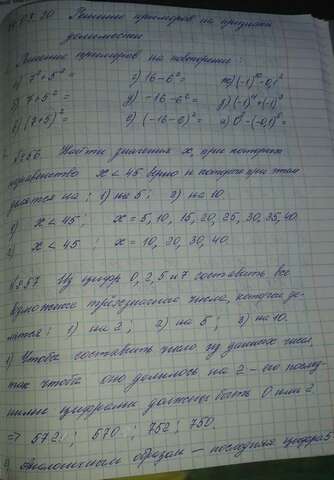 10.03.20 Решение примеров на признаки
делимости
Решение примеров на повторение:
а) 7²+5² = г) 16-6² = ж) (-1)
б) 7+5² = д) -16-6² =
в) (7+5)² = е) (-16-6)² =
№856 Найти значения x, при которых
неравенство x < 45 верно и которые при этом
делятся на: 1) на 5; 2) на 10.
1) x < 45; x = 5, 10, 15, 20, 25, 30, 35, 40.
2) x < 45 ; x = 10, 20, 30, 40.
№857 Из цифр 0, 2, 5 и 7 составить все
возможные трёхзначного числа, которые де-
лится: 1) на 2, 2) на 5; 3) на 10.
1) Чтобы составить число из данных чисел,
так чтобы оно делилось на 2 – его послед-
ними цифрами должны быть 0 или 2
=> 572 ; 570 ; 752 ; 750.
Аналогичным образом – последняя цифра 5